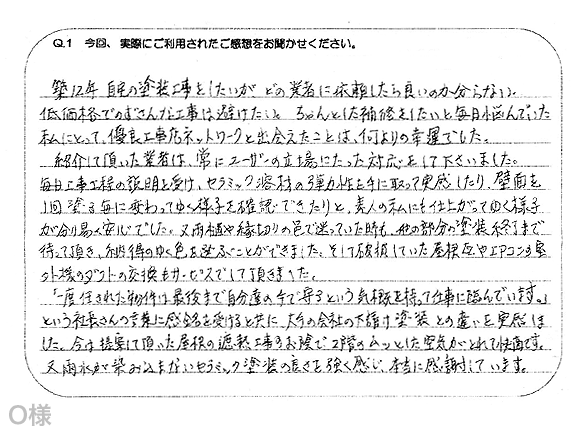 Q.1 今回、実際にご利用されたご感想をお聞かせください。
築12年 自宅の塗装工事をしたいが どの業者に依頼したら良いのか分らない。
低価格でのずさんな工事は避けたい。ちゃんとした補修をしたいと毎日悩んでいた
私にとって、優良工事店ネットワークと出会えたことは、何よりの幸運でした。
紹介して頂いた業者は、常にユーザーの立場にたった対応をして下さいました。
毎日工事工程の説明を受け、セラミック溶材の弾力性を手に取って実感したり、壁面を
1回塗る毎に変わってゆく様子を確認できたりと、素人の私にも仕上がってゆく様子
が分り易く安心でした。又雨樋や縁切りの色で迷っていた時も、他の部分の塗装が終了まで
待って頂き、納得のゆく色を選ぶことができました。そして破損していた屋根瓦やエアコンの室
外機のダクトの交換もサービスでして頂きました。
「一度任された物件は最後まで自分達の手で守るという気概を持って仕事に臨んでいます。」
という社長さんの言葉に感銘を受けると共に、大手の会社の下請け塗装との違いを実感しま
した。今は提案して頂いた屋根の遮熱工事のお陰で、2階のムッとした空気がとれて快適です。
又雨水が染み込まないセラミック塗装の良さを強く感じ、本当に感謝しています。
O様